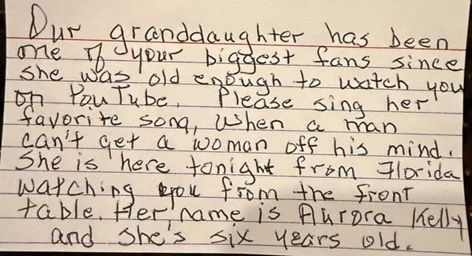 Our granddaughter has been
one of your biggest fans since
she was old enough to watch you
on YouTube. Please sing her
favorite song, When a man
can't get a woman off his mind.
She is here tonight from Florida
watching you from the front
table. Her name is Aurora Kelly
and she's six years old.